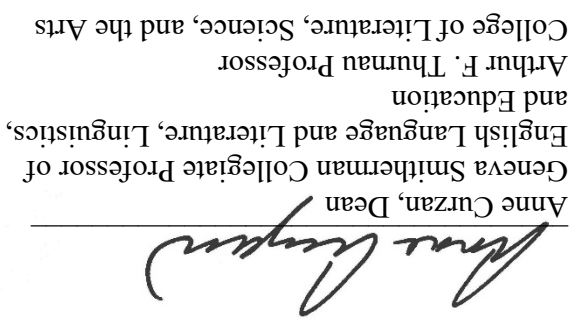 Anne Curzan
Anne Curzan, Dean
Geneva Smitherman Collegiate Professor of
English Language and Literature, Linguistics,
and Education
Arthur F. Thurnau Professor
College of Literature, Science, and the Arts